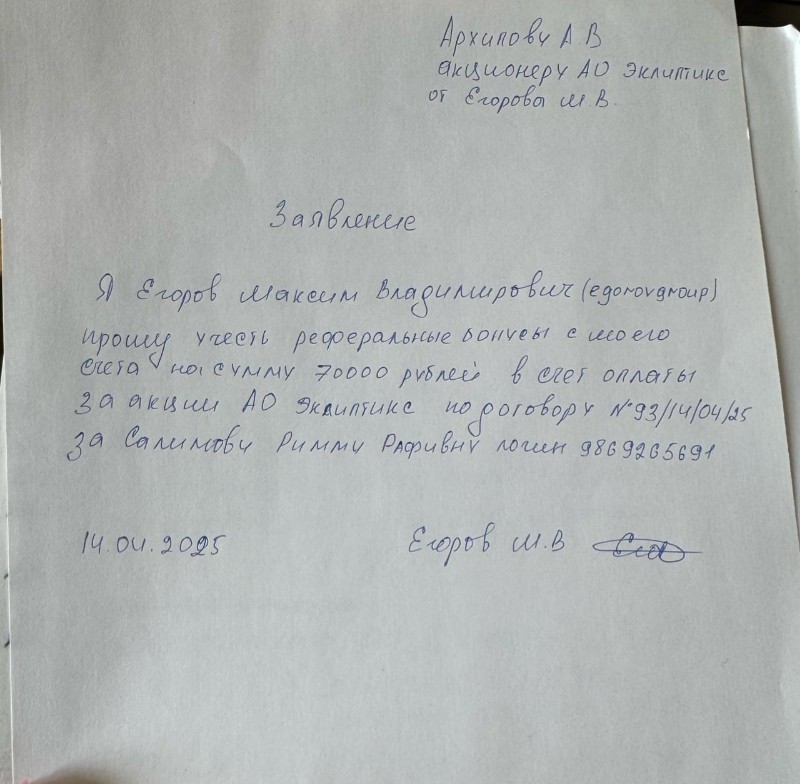 Архипову А.В
акционеру АО Эклиптикс
от Егорова М.В.
Заявление
Я Егоров Максим Владимирович (egorovgroup)
прошу учесть реферальные бонусы с моего
счета на сумму 70000 рублей в счет оплаты
за акции АО Эклиптикс по договору №93/14/04/25
за Салимову Римму Рафивну логин 9869265691
14.04.2025 Егоров М.В